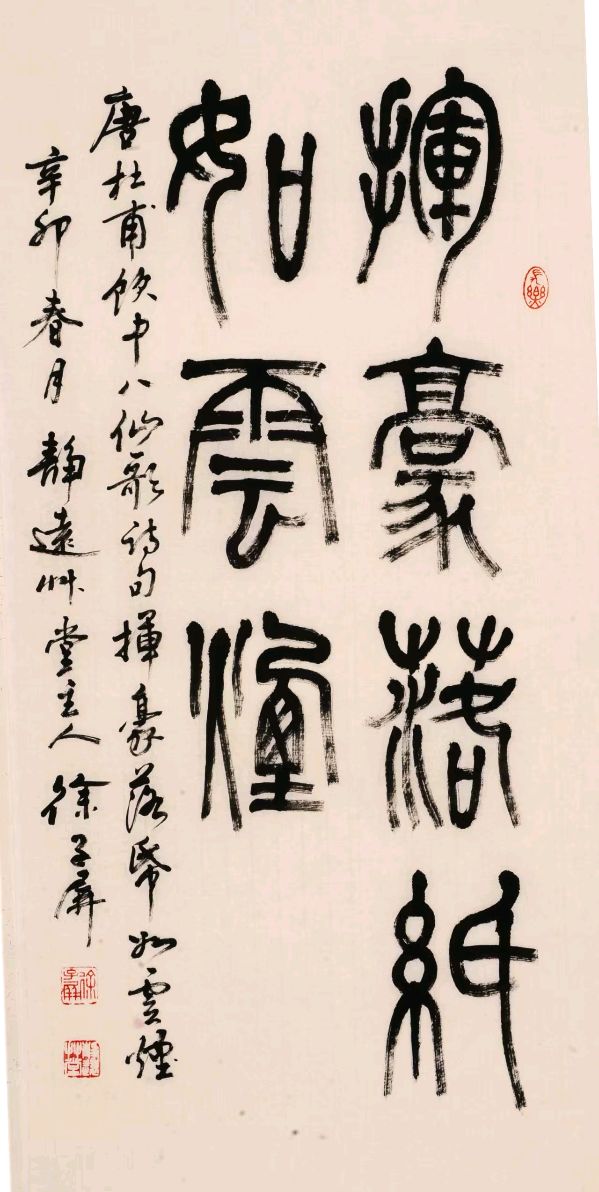 揮豪落紙
如雲煙
唐杜甫飲中八仙歌詩句揮豪落帋如雲煙
辛卯春月靜遠艸堂主人徐子屏
長樂